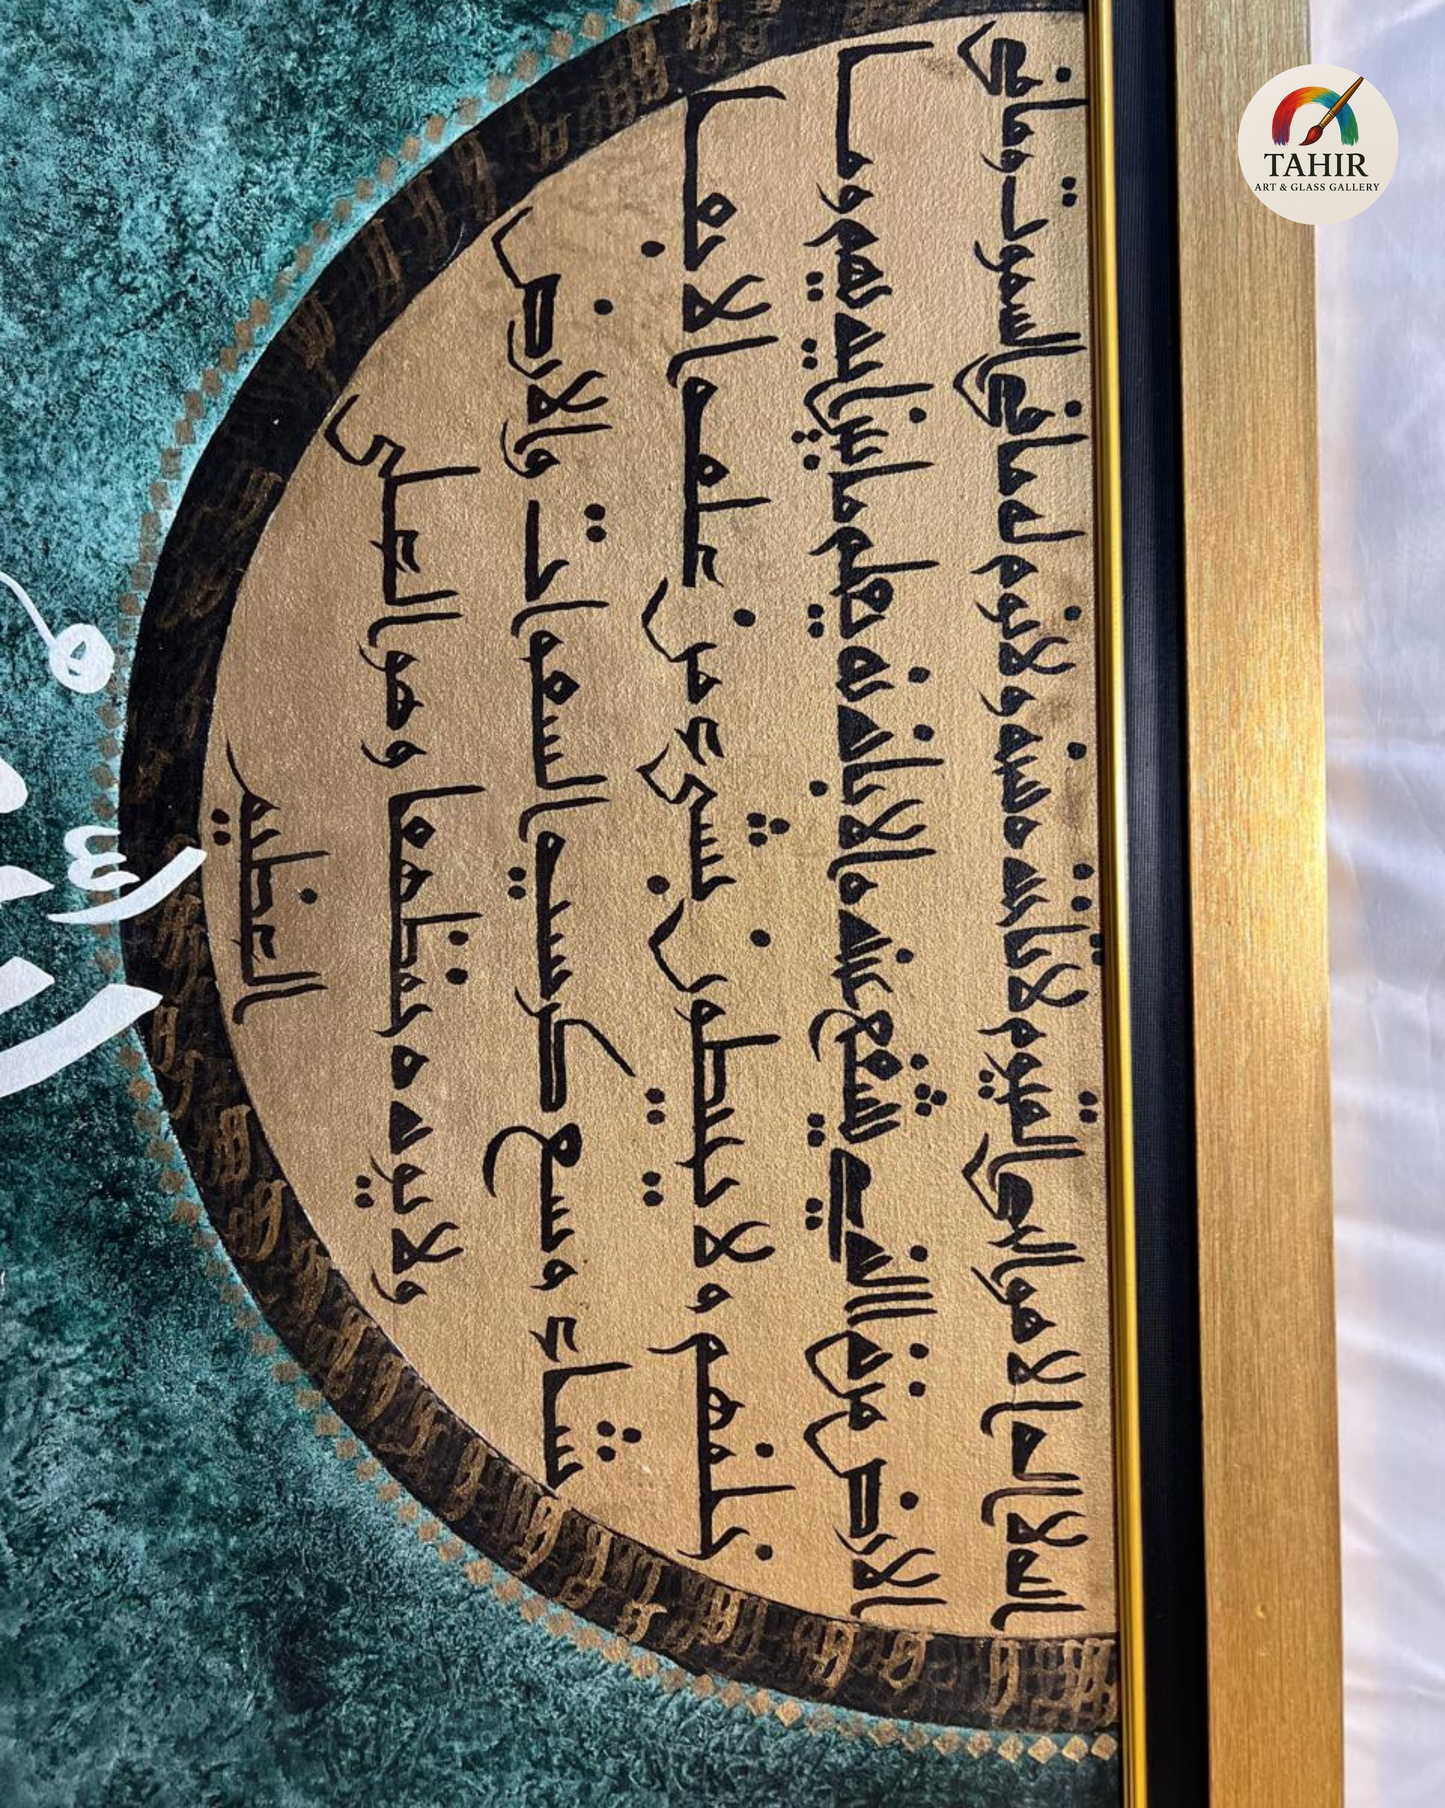 الله لا اله الا هو الحى القيوم لا تاخذه سنه ولا نوم له ما فى السموت وما فى
الارض من ذا الذى يشفع عنده الا باذنه يعلم ما بين ايديهم وما
خلفهم ولا يحيطون بشىء من علمه الا بما
شاء وسع كرسيه السموات والارض
ولا يوده حفظهما وهو العلى
العظيم
TAHIR
ART & GLASS GALLERY